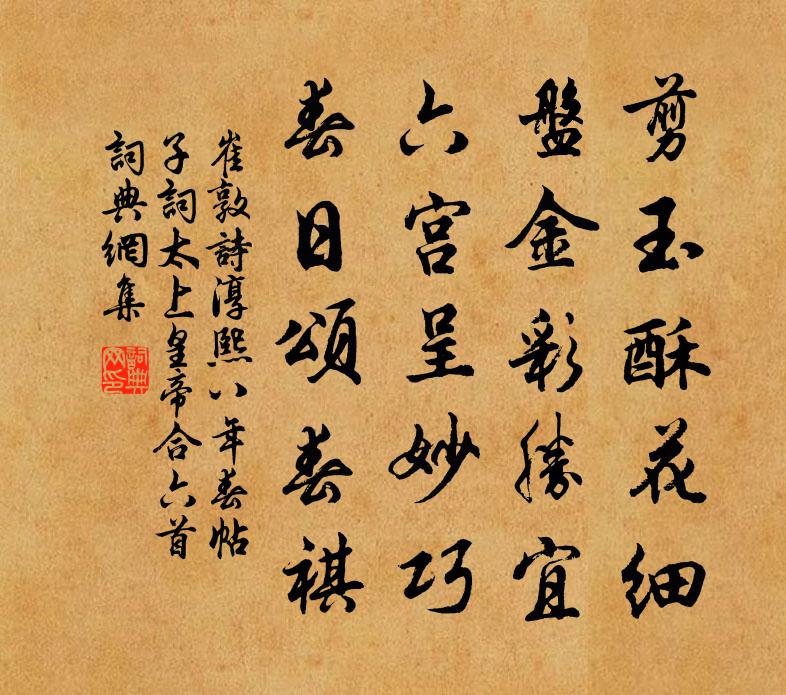 剪玉酥花细
盤金彩勝宜
六宮呈妙巧
春日頌春祺
崔敦詩淳熙八年春帖
子詞太上皇帝合六首
詞典網集
詞典網印